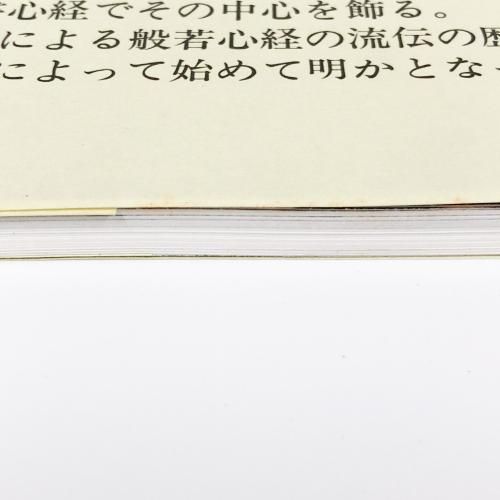 心経でその中心を飾る。
による般若心経の流伝の歴
によって始めて明かとな